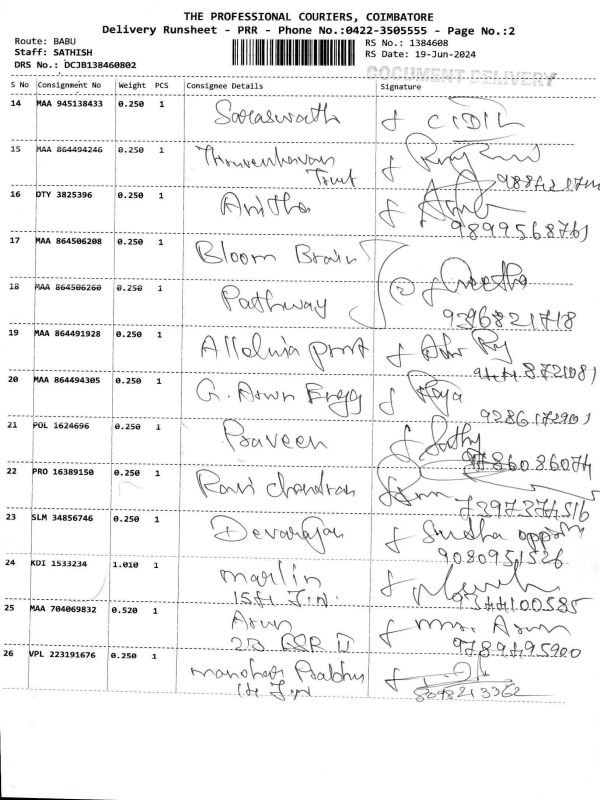 THE PROFESSIONAL COURIERS, COIMBATORE
Delivery Runsheet - PRR - Phone No.:0422-3505555 - Page No.:2
Route: BABU RS No.: 1384608
Staff: SATHISH RS Date: 19-Jun-2024
DRS No.: DCJB138460802
DOCUMENT DELIVERY
S No Consignment No Weight PCS Consignee Details Signature
14 MAA 945138433 0.250 1 Saraswath
15 MAA 864494246 0.250 1
Trust
16 OTY 3825396 0.250 1 Anitha
9899568761
17 MAA 864506208 0.250 1 Bloom Brain
18 MAA 864506260 0.250 1 Pathway
9396821718
19 MAA 864491928 0.250 1 Alleluia
20 MAA 864494305 0.250 1 G. Arun Engg Raja
9286172901
21 POL 1624696 0.250 1 Praveen Sathy
9786086074
22 PRO 16389150 0.250 1 Ravi chandran
7397374516
23 SLM 34856746 0.250 1 Devarajan Sudha
9080951526
24 KDI 1533234 1.010 1 marlin
9344100585
25 MAA 704069832 0.520 1 Arun mrs. Arun
9789495900
26 VPL 223191676 0.250 1 manohar Prabhu
8098213362